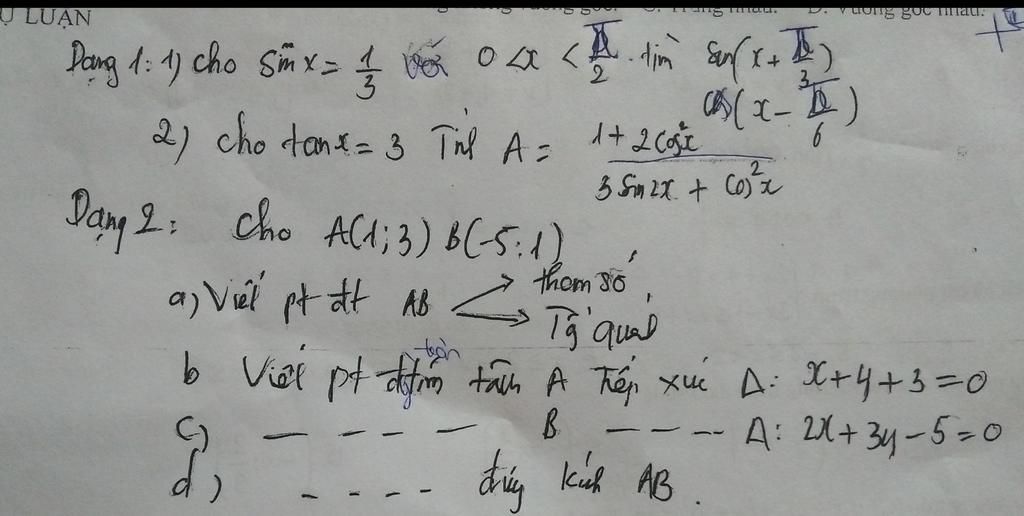 Ự LUẬN
vuông góc. C. Trùng nhau. D. Vuông góc nhau.
Dạng 1: 1) cho sin x = 1/3 với 0 < x < π/2 . tìm sin(x + π/3)
cos(x - π/6)
2) cho tan x = 3 Tính A = (1 + 2cos²x)/(3 sin2x + cos²x)
Dạng 2: Cho A(1;3) B(-5;1)
a) Viết pt đt AB tham số
Tg quát
b Viết pt đg tròn tâm A Tiếp xúc Δ: x + y + 3 = 0
c) — — — — B — — — Δ: 2x + 3y - 5 = 0
d) - - - - đường kính AB.